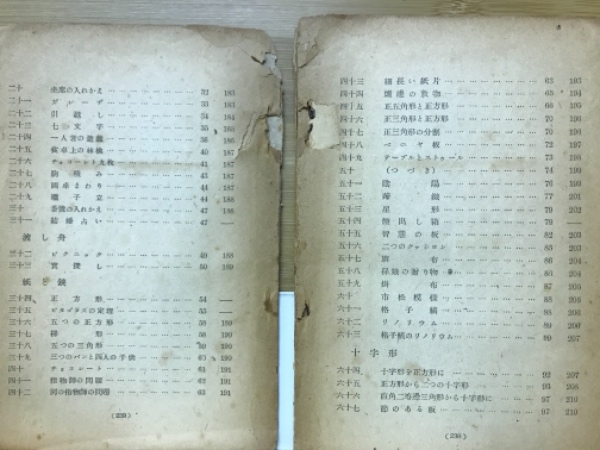 二十 坐席の入れかえ 32 183
二十一 33 183
二十二 引越し 34 184
二十三 七文字 35
二十四 36 186
二十五 食卓上の林檎 40 187
二十六 チョコレート九枚 41 187
二十七 43 187
二十八 円卓まわり 44 187
二十九 44 188
三十 客霊の入れかえ 47 188
三十一 結婚占い 47 ——
渡し舟
三十二 ピクニック 49 188
三十三 50 189
紙と鋏
三十四 正方形 54 ——
三十五 ピタゴラスの定理 55 ——
三十六 五つの正方形 56 190
三十七 梯形 58 190
三十八 五つの三角形 59 190
三十九 三つのパンと四人の子供 60 190
四十 チョコレート 61 191
四十一 指物師の問題 61 191
四十二 同の指物師の問題 63 191
(239)
四十三 細長い紙片 63 193
四十四 煖炉の敷物 65 194
四十五 正五角形と正方形 66 195
四十六 正三角形と正方形 70 196
四十七 正三角形の分割 70 198
四十八 ベニヤ板 72 197
四十九 テーブルとストゥール 73 198
五十 (つづき) 74 199
五十一 陰陽 76 199
五十二 77 201
五十三 星形 79 201
五十四 79 ——
五十五 智慧の板 82 203
五十六 二つのクッション 85 203
五十七 86 204
五十八 86 204
五十九 掛布 87 205
六十 市松模様 88 205
六十一 格子縞 88 206
六十二 リノリウム 89 206
六十三 格子柄のリノリウム 89 207
十字形
六十四 十字形を正方形に 92 207
六十五 正方形から二つの十字形 93 208
六十六 直角二等辺三角形から十字形に 97 210
六十七 節のある板 97 210
(238)